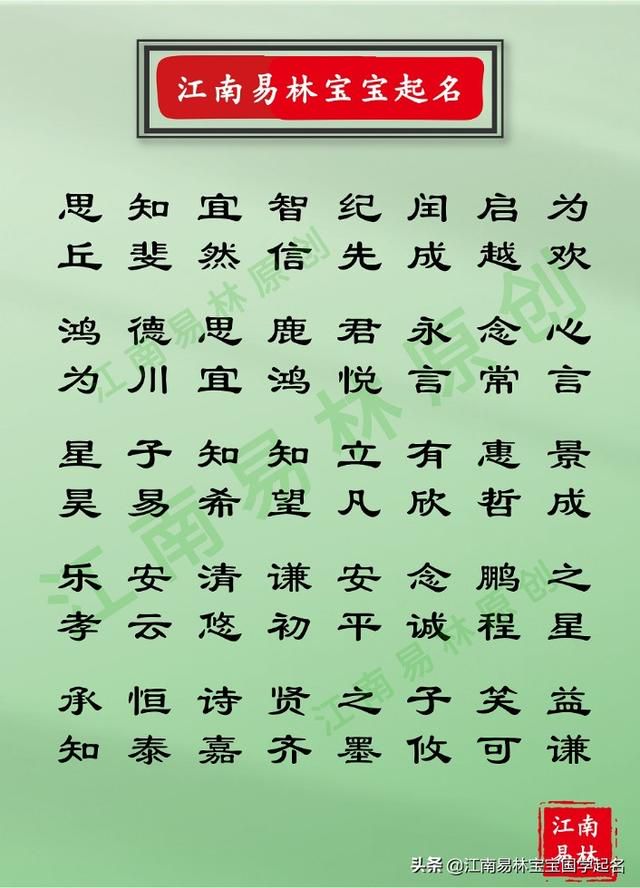 江南易林宝宝起名
思 知 宜 智 纪 闰 启 为
丘 斐 然 信 先 成 越 欢
鸿 德 思 鹿 君 永 念 心
为 川 宜 鸿 悦 言 常 言
星 子 知 知 立 有 惠 景
昊 易 希 望 凡 欣 哲 成
乐 安 清 谦 安 念 鹏 之
孝 云 悠 初 平 诚 程 星
承 恒 诗 贤 之 子 笑 益
知 泰 嘉 齐 墨 攸 可 谦
江南易林原创
江南易林原创
江南易林原创
江南
易林
头条 @江南易林宝宝国学起名